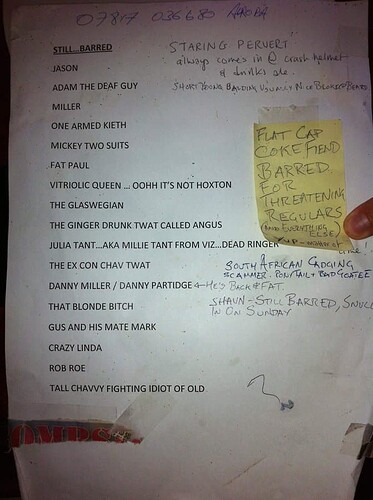 07817 036680
STILL...BARRED
STARING PERVERT
always comes in @ crash helmet
& drinks ale.
JASON
ADAM THE DEAF GUY
SHORT YOUNG BALDING USUALLY
MILLER
ONE ARMED KIETH
MICKEY TWO SUITS
FAT PAUL
VITRIOLIC QUEEN ... OOHH IT'S NOT HOXTON
THE GLASWEGIAN
THE GINGER DRUNK TWAT CALLED ANGUS
JULIA TANT...AKA MILLIE TANT FROM VIZ...DEAD RINGER
THE EX CON CHAV TWAT
DANNY MILLER / DANNY PARTIDGE
THAT BLONDE BITCH
GUS AND HIS MATE MARK
CRAZY LINDA
ROB ROE
TALL CHAVVY FIGHTING IDIOT OF OLD
FLAT CAP
COKE FIEND
BARRED
FOR
THREATENING
REGULARS
(AND EVERYTHING
ELSE)
time!
SOUTH AFRICAN CADGING
SCAMMER. PONYTAIL + BAD GOATEE
HE'S BACK & FAT.
SHAUN - STILL BARRED,
IN ON SUNDAY